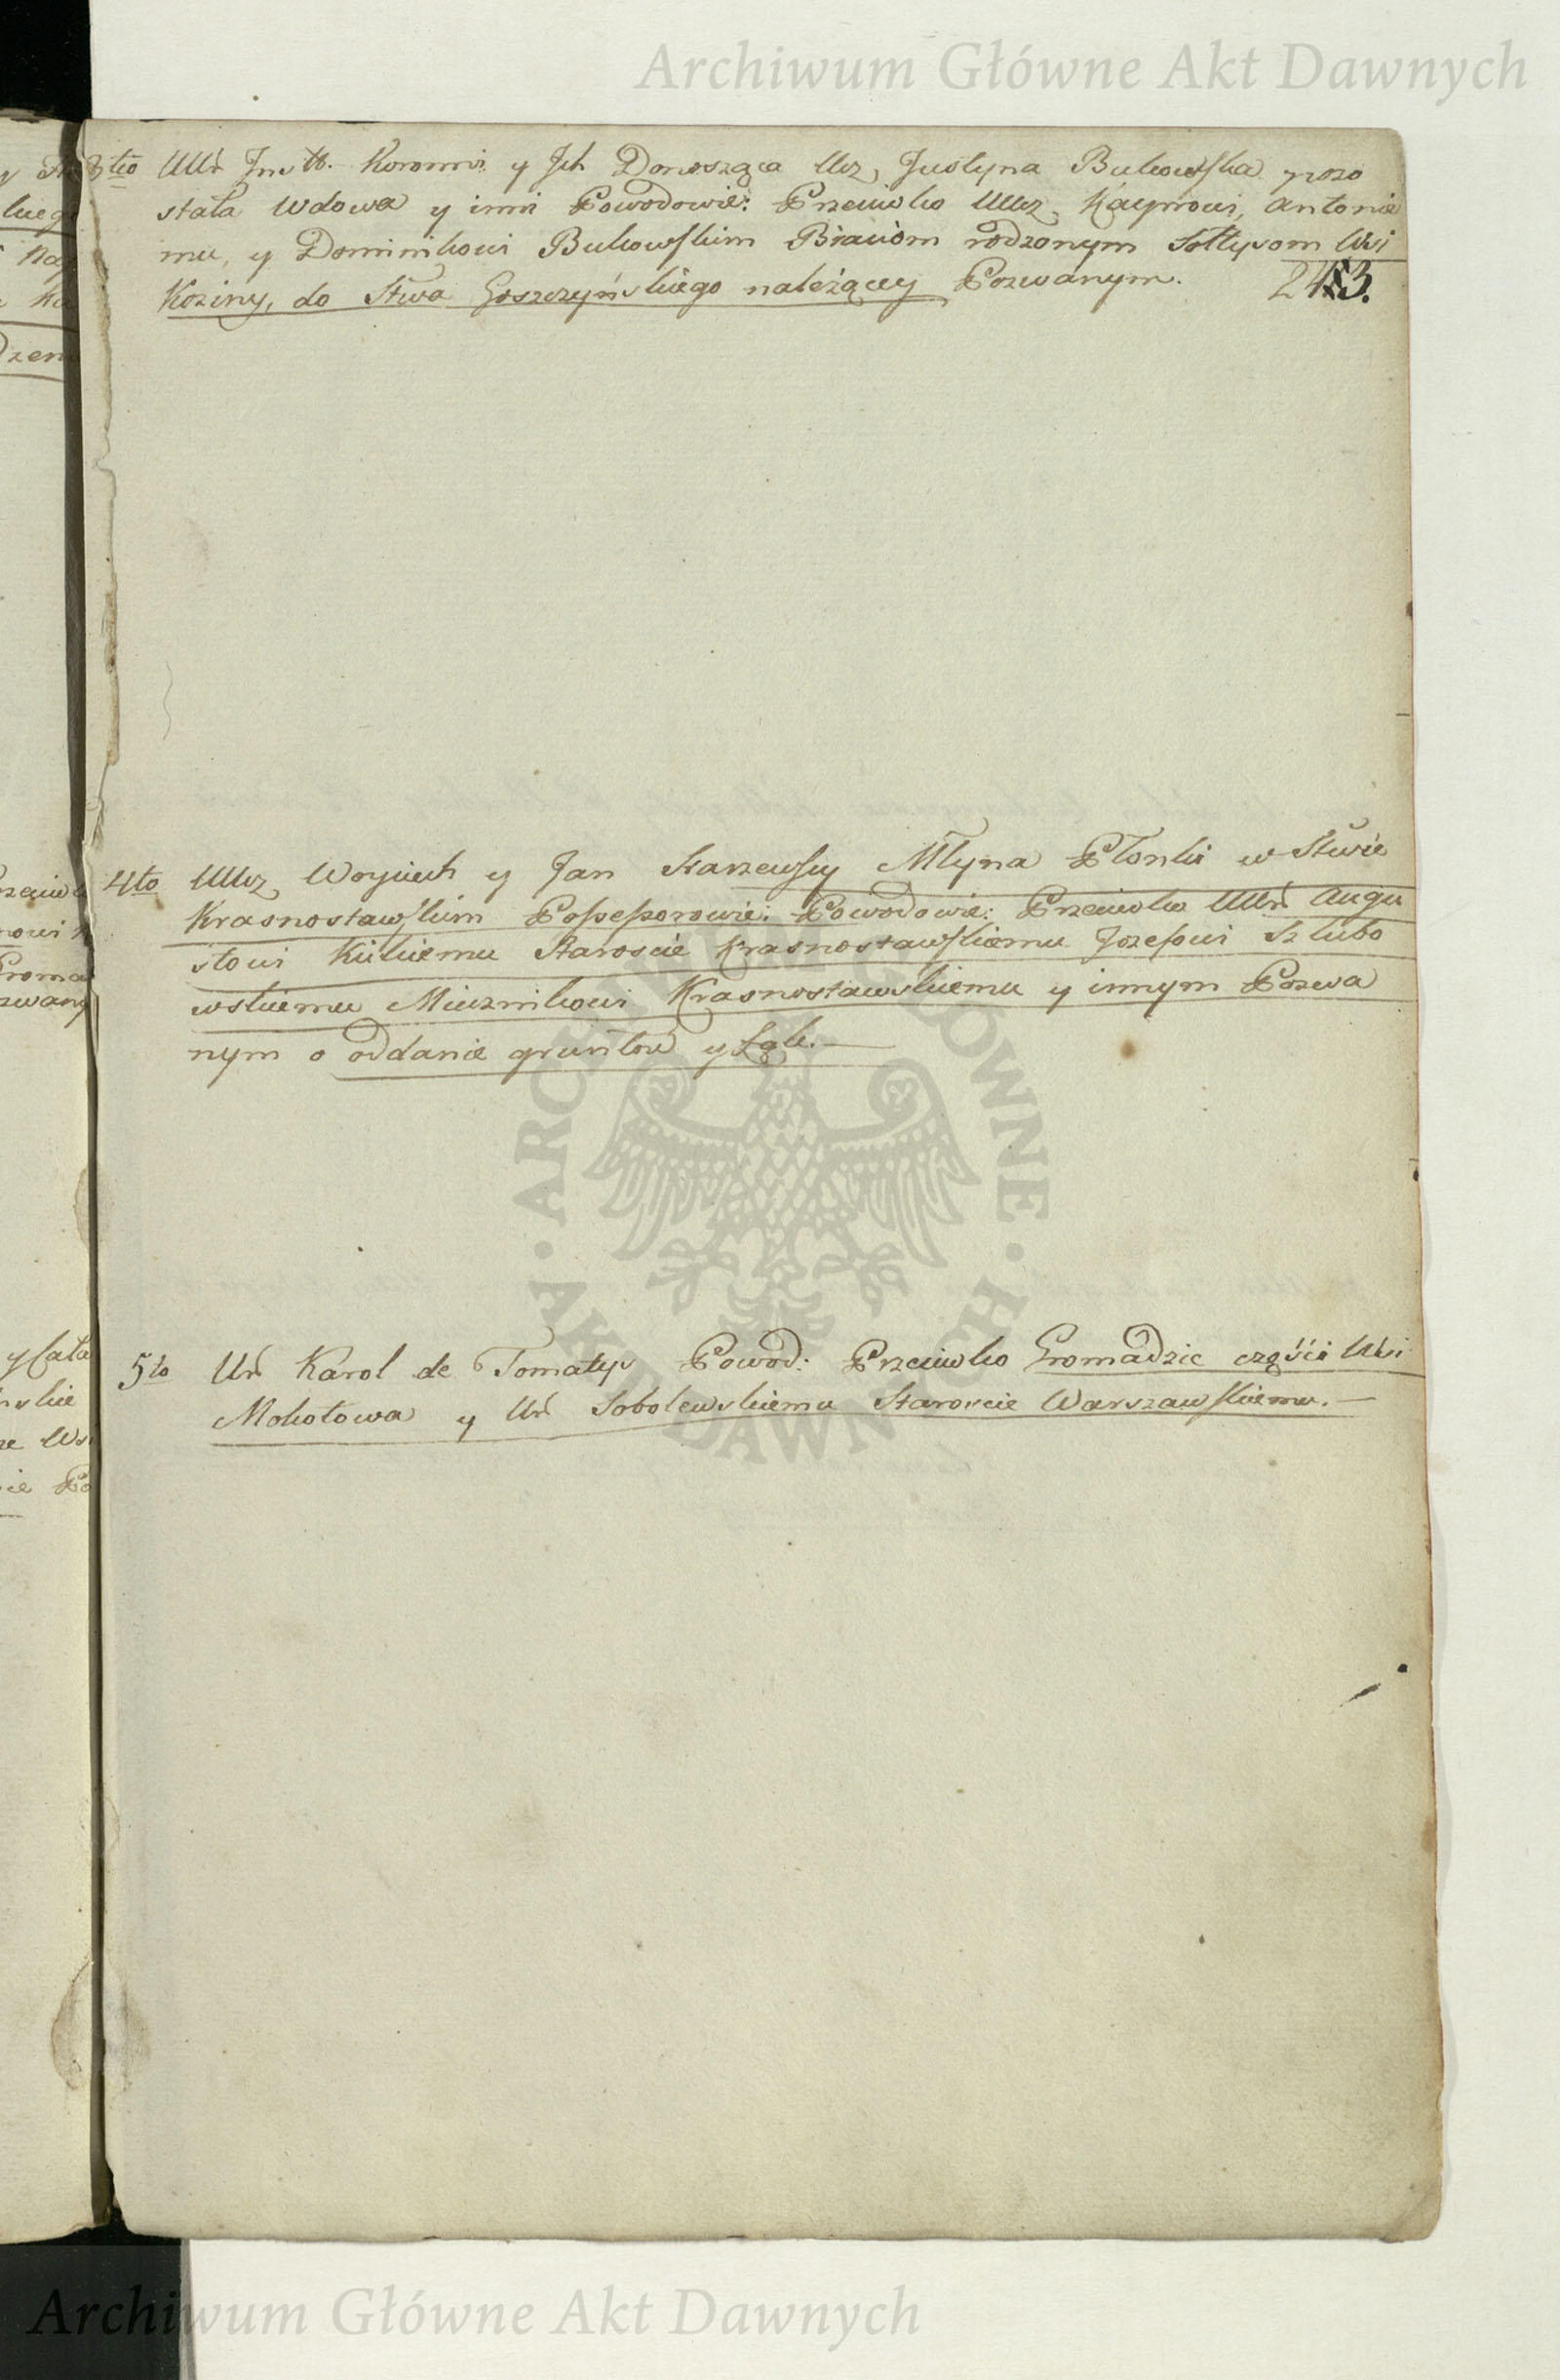 Archiwum Główne Akt Dawnych
3tio UUr Inst. Koronni y Ich Donosząca Ucz. Justyna Bukowska pozo
stała Wdowa y inni Powodowie: Przeciwko UUcz. Kacprowi, Antonie
mu, y Dominikowi Bukowskim Braciom rodzonym Sołtysom Wsi
Koziny, do Stwa Goszczyńskiego należącey Pozwanym. 243.
4to UUcz Woyciech y Jan Starzewscy Młyna Płonki w Stwie
Krasnostawskim Possessorowie: Powodowie: Przeciwko UUr Augu
stowi Kickiemu Staroscie Krasnostawskiemu Jozefowi Szlubo
wskiemu Miecznikowi Krasnostawskiemu y innym Pozwa
nym o oddanie gruntów y Łąk.
5to Ur Karol de Tomatys Powod: Przeciwko Gromadzie części Wsi
Mokotowa y Ur Sobolewskiemu Staroscie Warszawskiemu.
ARCHIWUM GŁÓWNE AKT DAWNYCH
Archiwum Główne Akt Dawnych